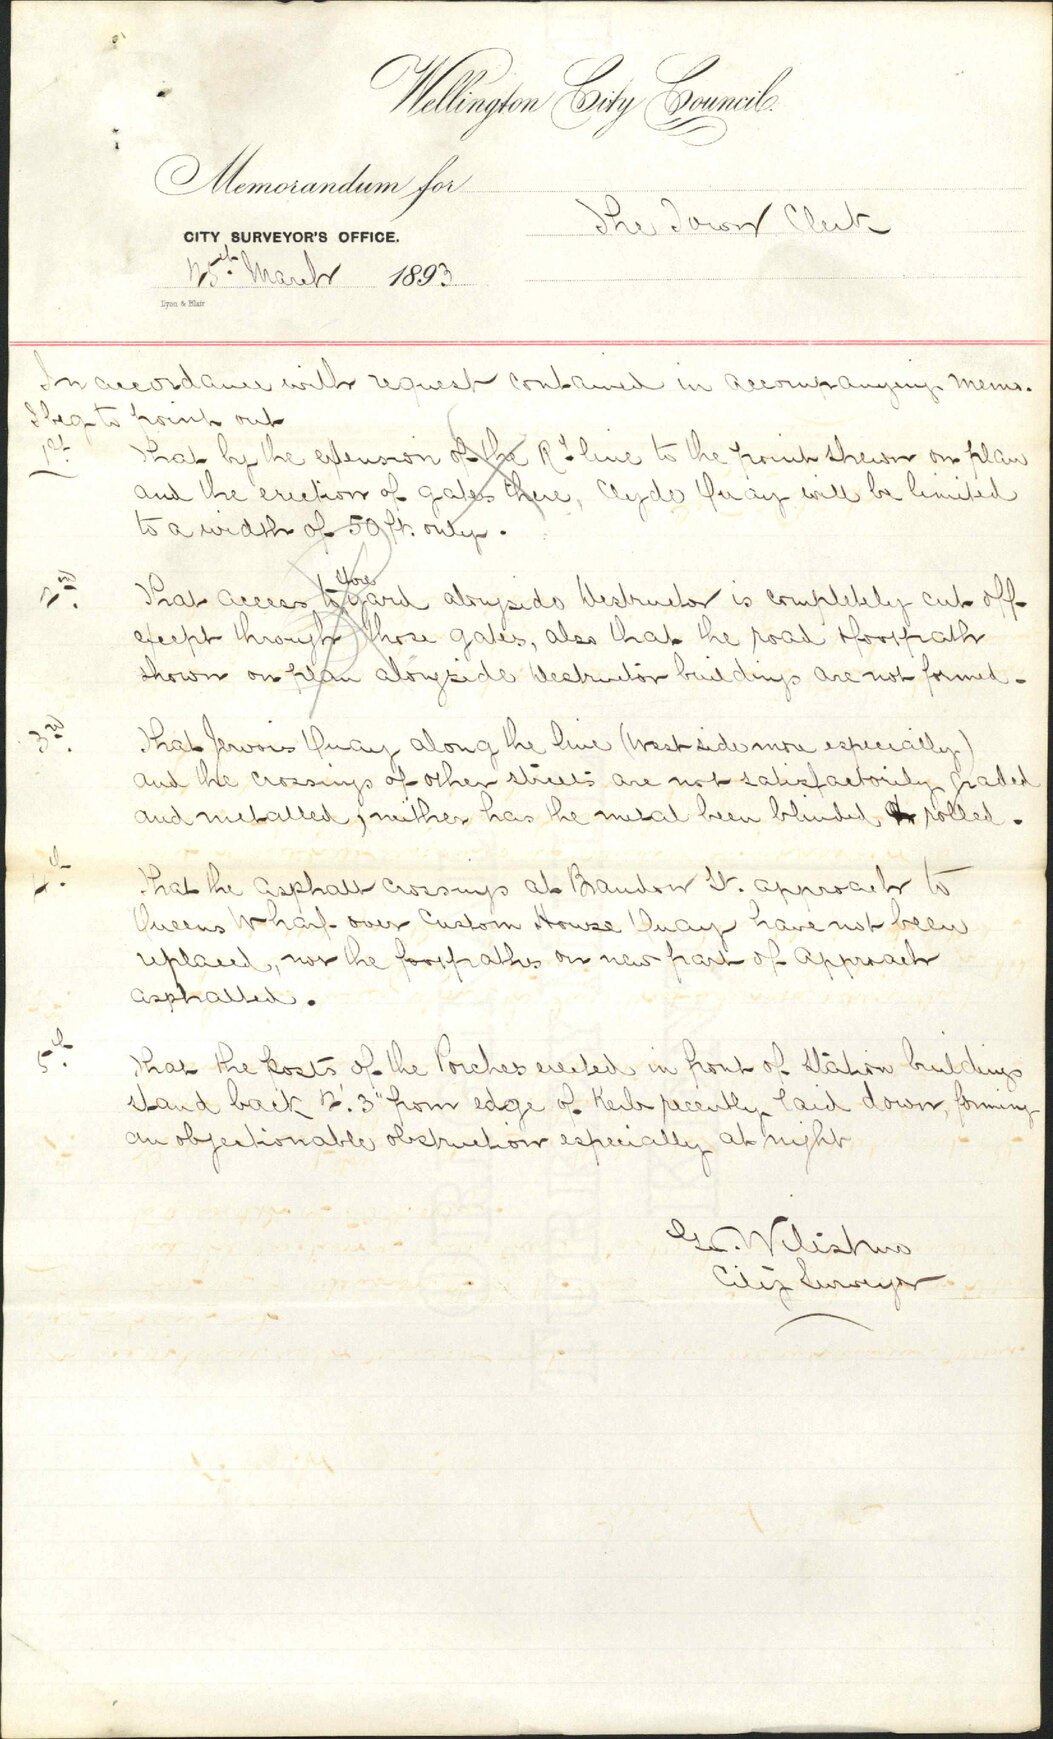 Wellington City Council.
Memorandum for
The Town Clerk
CITY SURVEYOR'S OFFICE.
25th March 1893
Lyon & Blair
In accordance with request contained in accompanying memo.
I beg to point out
1st. That by the extension of the Ry line to the point shewn on plan
and the erection of gates there, Clyde Quay will be limited
to a width of 50 ft. only.
2nd. That access to yard alongside Destructor is completely cut off
except through those gates, also that the road & footpath
shown on plan alongside Destructor buildings are not formed.
3rd. That Jervois Quay along the line (West side more especially)
and the crossings of other streets are not satisfactorily graded
and metalled, neither has the metal been blinded or rolled.
4th. That the asphalt crossings at Brandon St. approach to
Queens Wharf over Custom House Quay have not been
replaced, nor the footpaths on new part of approach
asphalted.
5th. That the posts of the Porches erected in front of Station buildings
stand back 2'. 3" from edge of Kerb recently laid down, forming
an objectionable obstruction especially at night
Geo. Wiltshire
City Surveyor